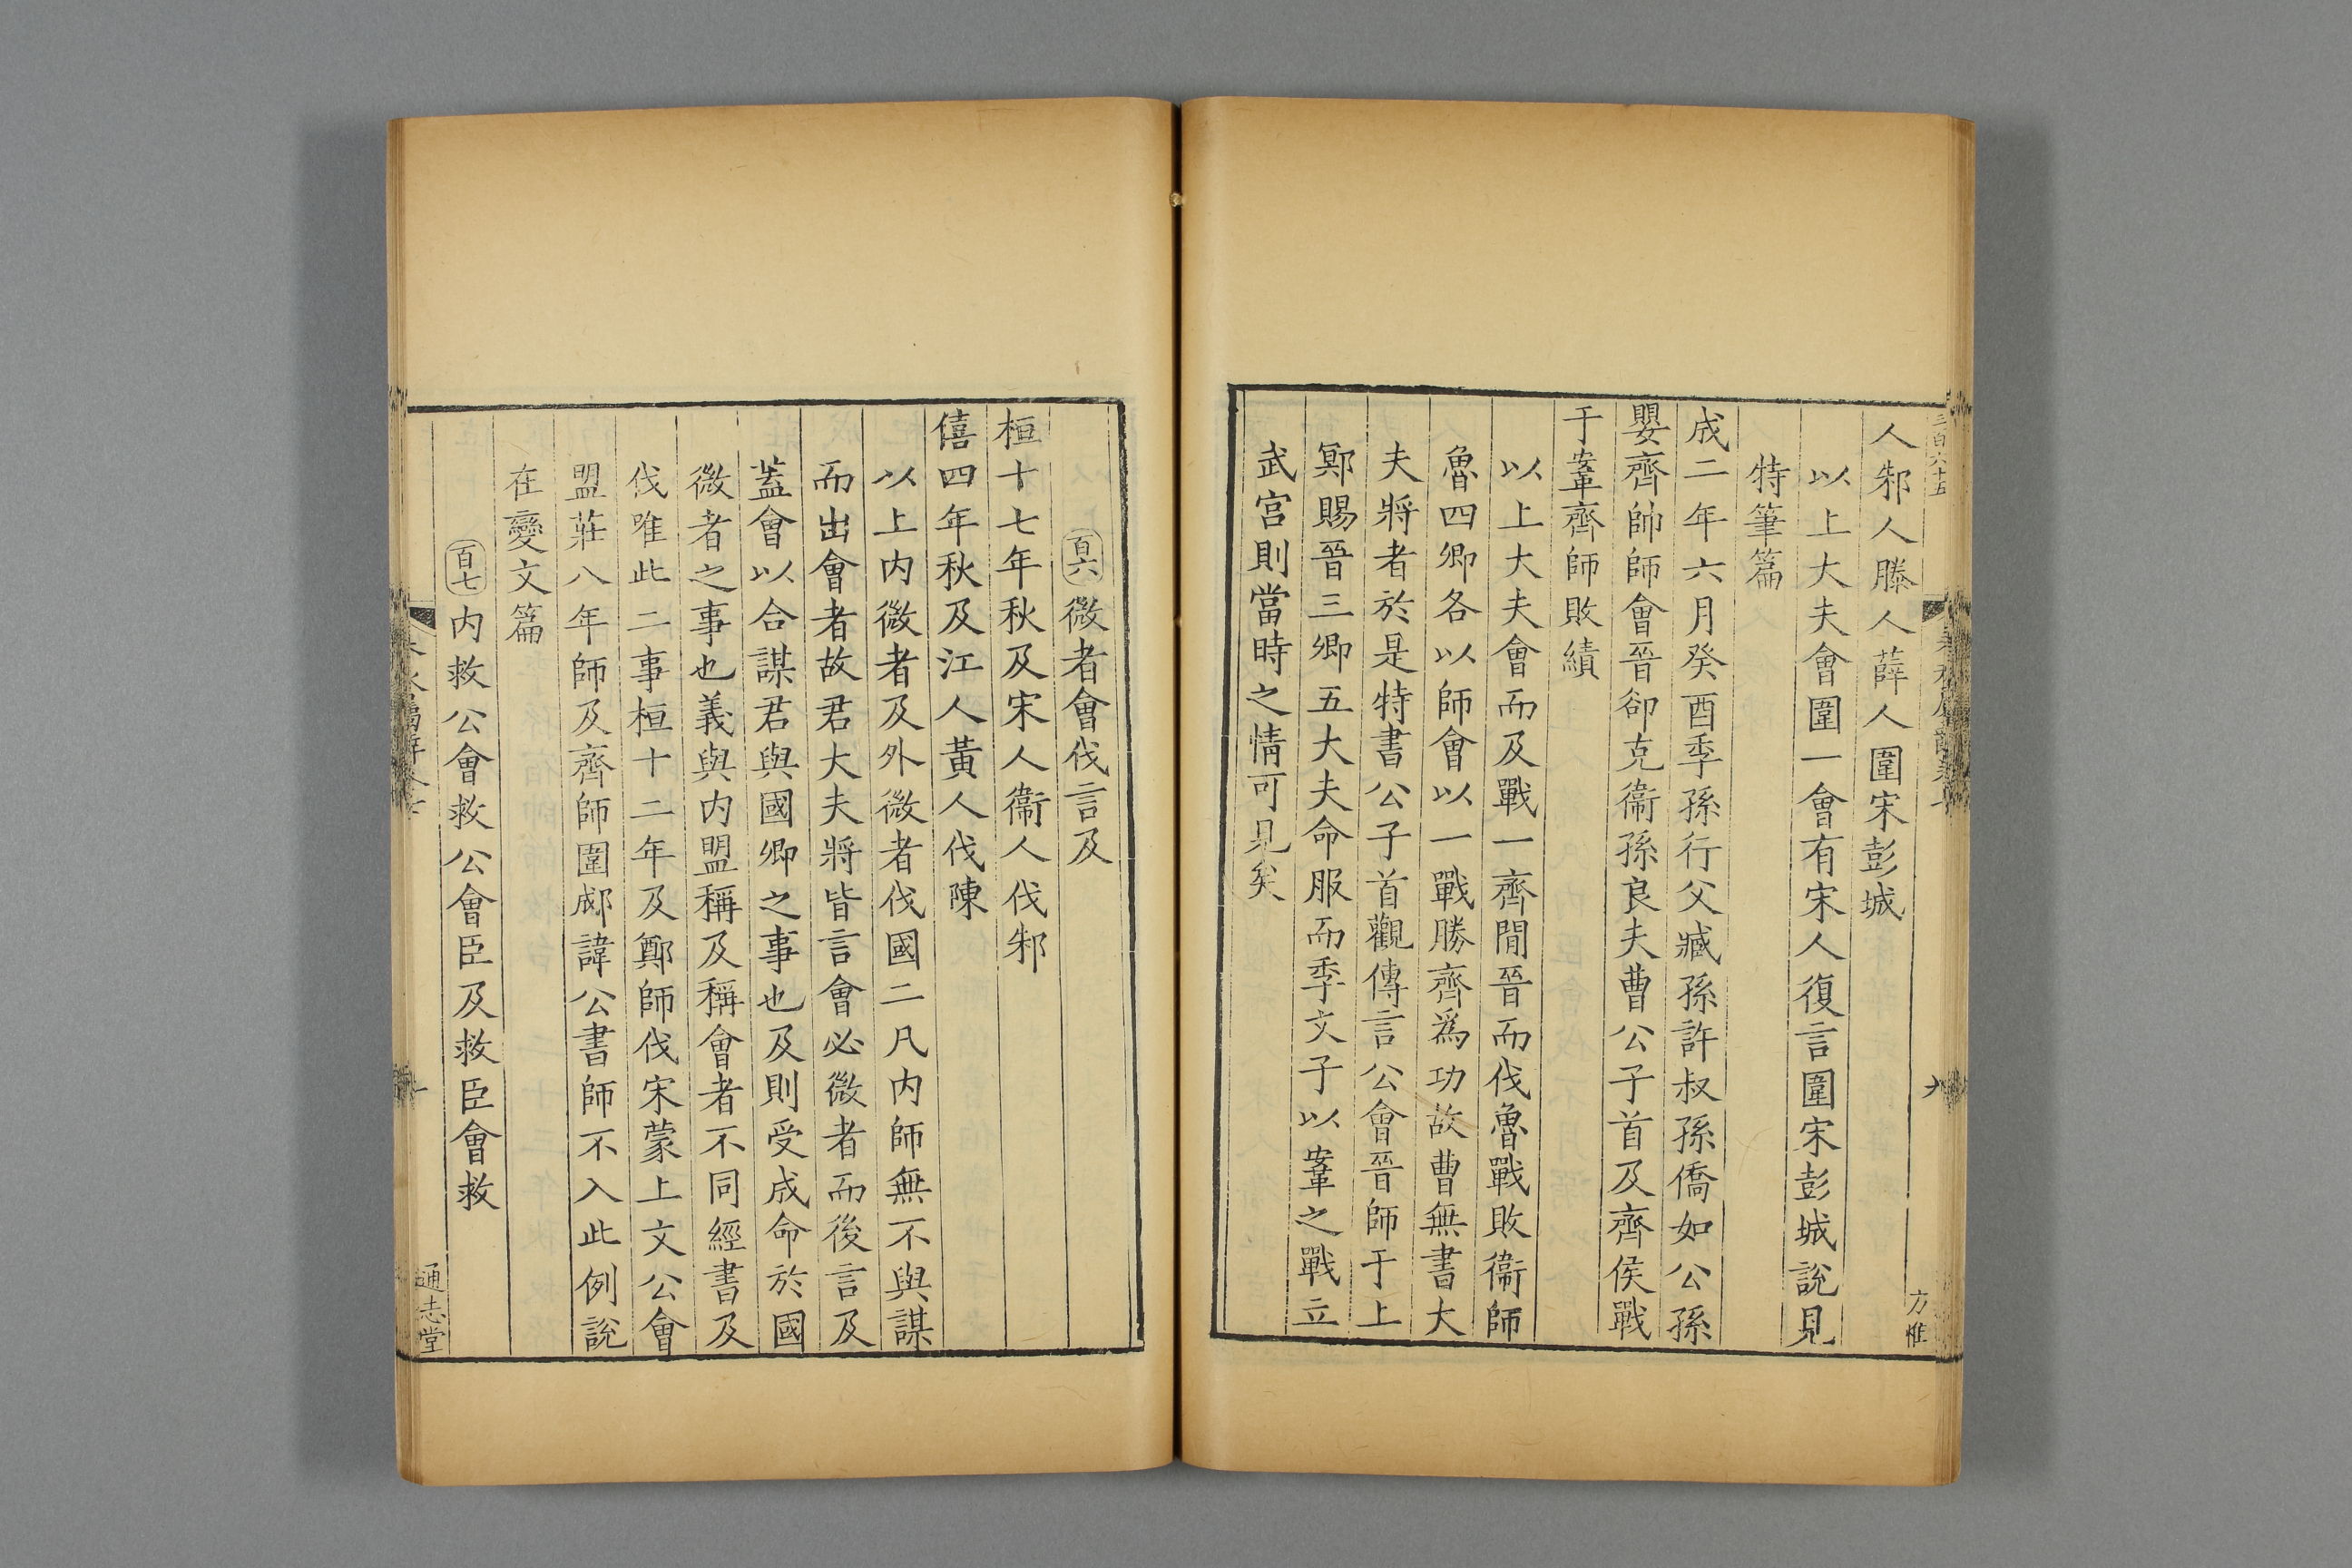 三百六十五
人邾人滕人薛人圍宋彭城
以上大夫會圍一會有宋人復言圍宋彭城說見
特筆篇
成二年六月癸酉季孫行父臧孫許叔孫僑如公孫
嬰齊帥師會晉郤克衞孫良夫曹公子首及齊侯戰
于鞌齊師敗績
以上大夫會而及戰一齊閒晉而伐魯戰敗衞師
魯四卿各以師會以一戰勝齊爲功故曹無書大
夫將者於是特書公子首觀傳言公會晉師于上
鄍賜晉三卿五大夫命服而季文子以鞌之戰立
武宮則當時之情可見矣
方惟
百六 微者會伐言及
桓十七年秋及宋人衞人伐邾
僖四年秋及江人黃人伐陳
以上内微者及外微者伐國二凡内師無不與謀
而出會者故君大夫將皆言會必微者而後言及
蓋會以合謀君與國卿之事也及則受成命於國
微者之事也義與内盟稱及稱會者不同經書及
伐唯此二事桓十二年及鄭師伐宋蒙上文公會
盟莊八年師及齊師圍郕諱公書師不入此例說
在變文篇
百七 内救公會救公會臣及救臣會救
通志堂